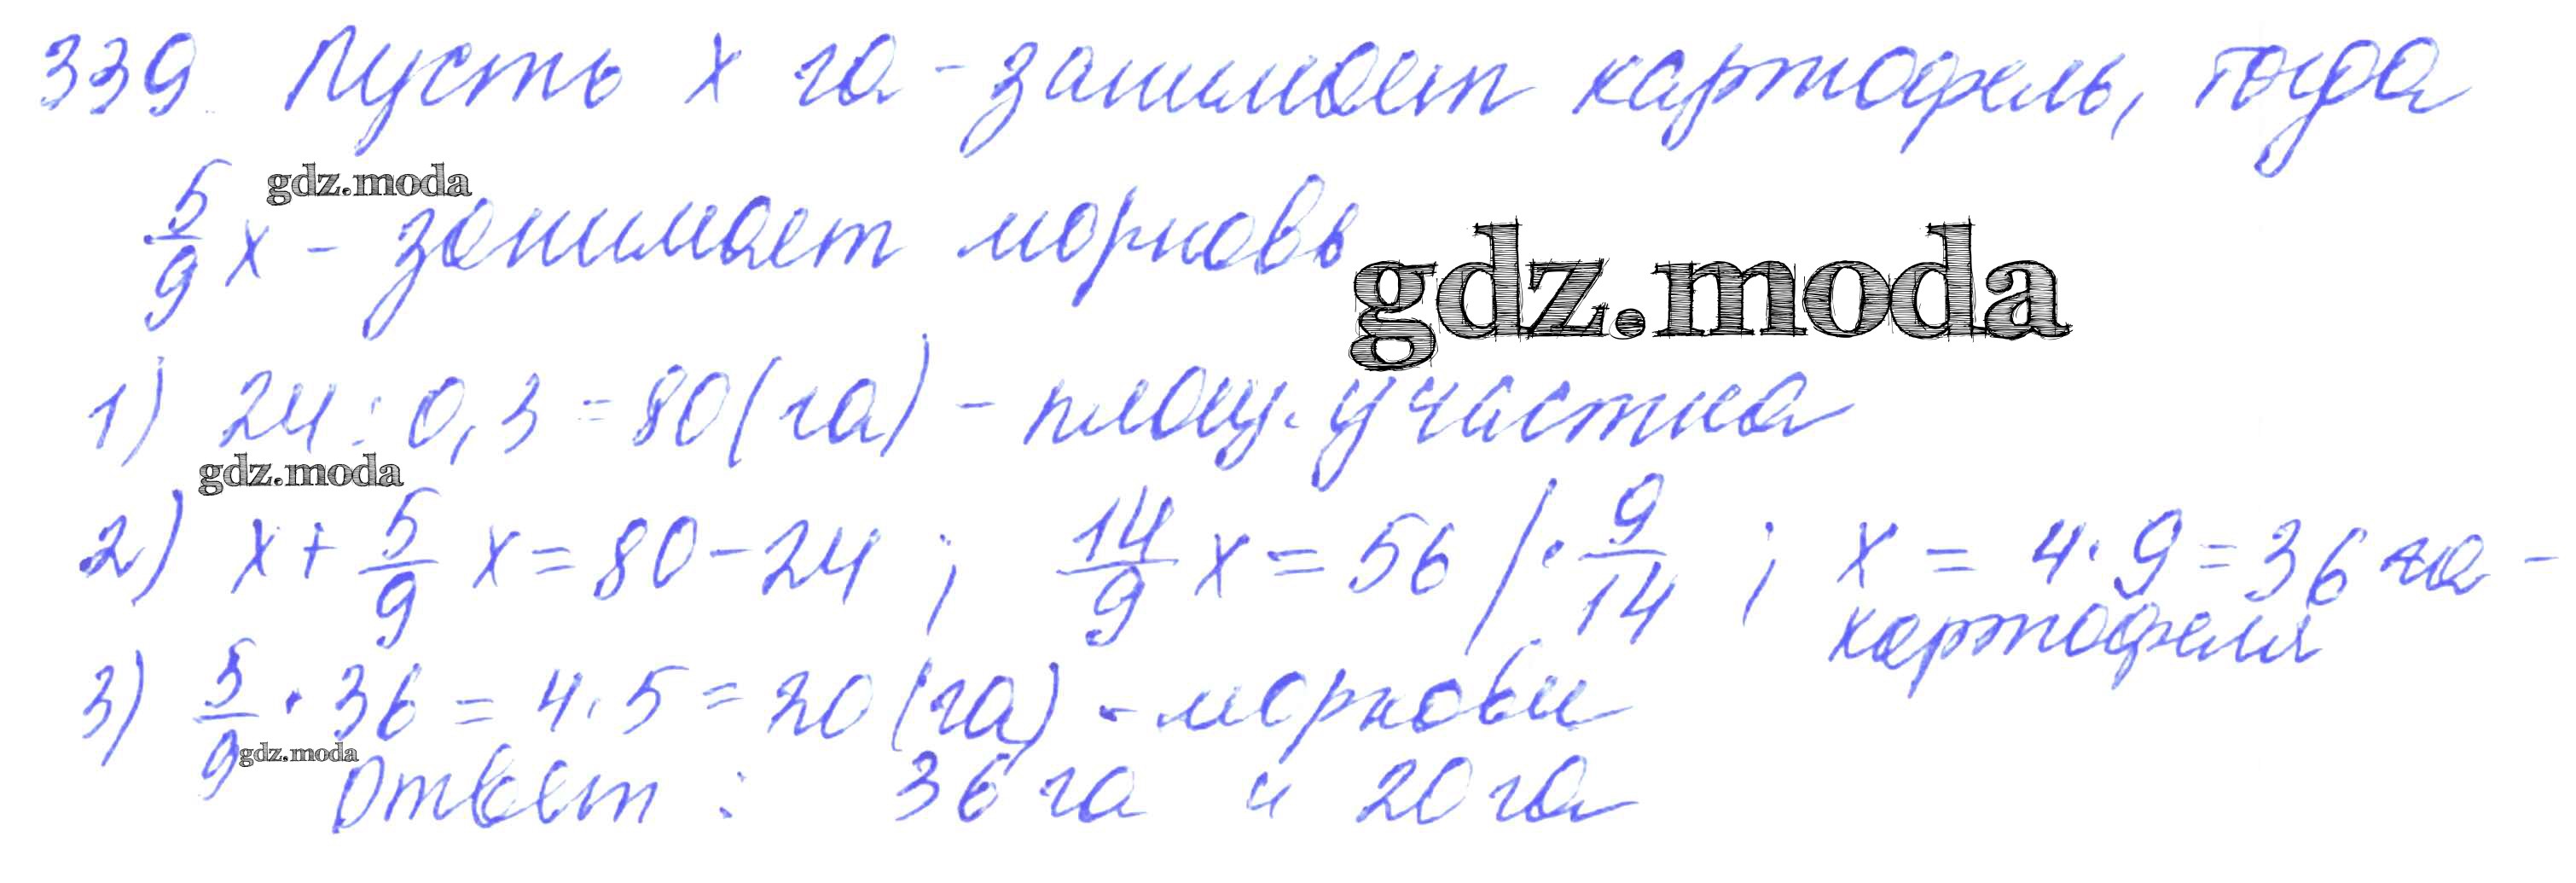 339 Пусть x га - занимает картофель, тогда
5/9 x - занимает морковь
gdz.moda
gdz.moda
1) 24 : 0,3 = 80 (га) - площ. участка
gdz.moda
2) x + 5/9 x = 80 - 24 ; 14/9 x = 56 | · 9/14 ; x = 4 · 9 = 36 га -
картофеля
3) 5/9 · 36 = 4 · 5 = 20 (га) - моркови
gdz.moda
Ответ : 36 га и 20 га